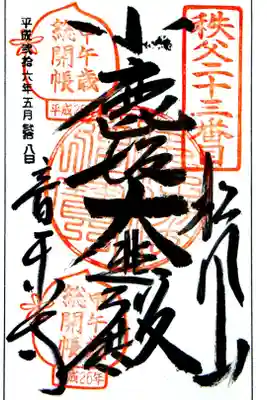 秩父二十三番
松風山
小鹿坂大悲殿
甲午歳
総開帳
平成26年
甲午歳
総開帳
平成26年
音楽寺
平成弐拾六年五月 八日